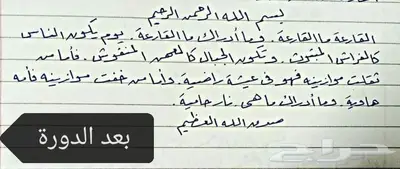 بسم الله الرحمن الرحيم
القارعة ما القارعة . وما أدراك ما القارعة . يوم يكون الناس
كالفراش المبثوث . وتكون الجبال كالعهن المنفوش . فأما من
ثقلت موازينه فهو في عيشة راضية . وأما من خفت موازينه فأمه
هاوية . وما أدراك ما هي . نار حامية .
صدق الله العظيم
بعد الدورة
حراج